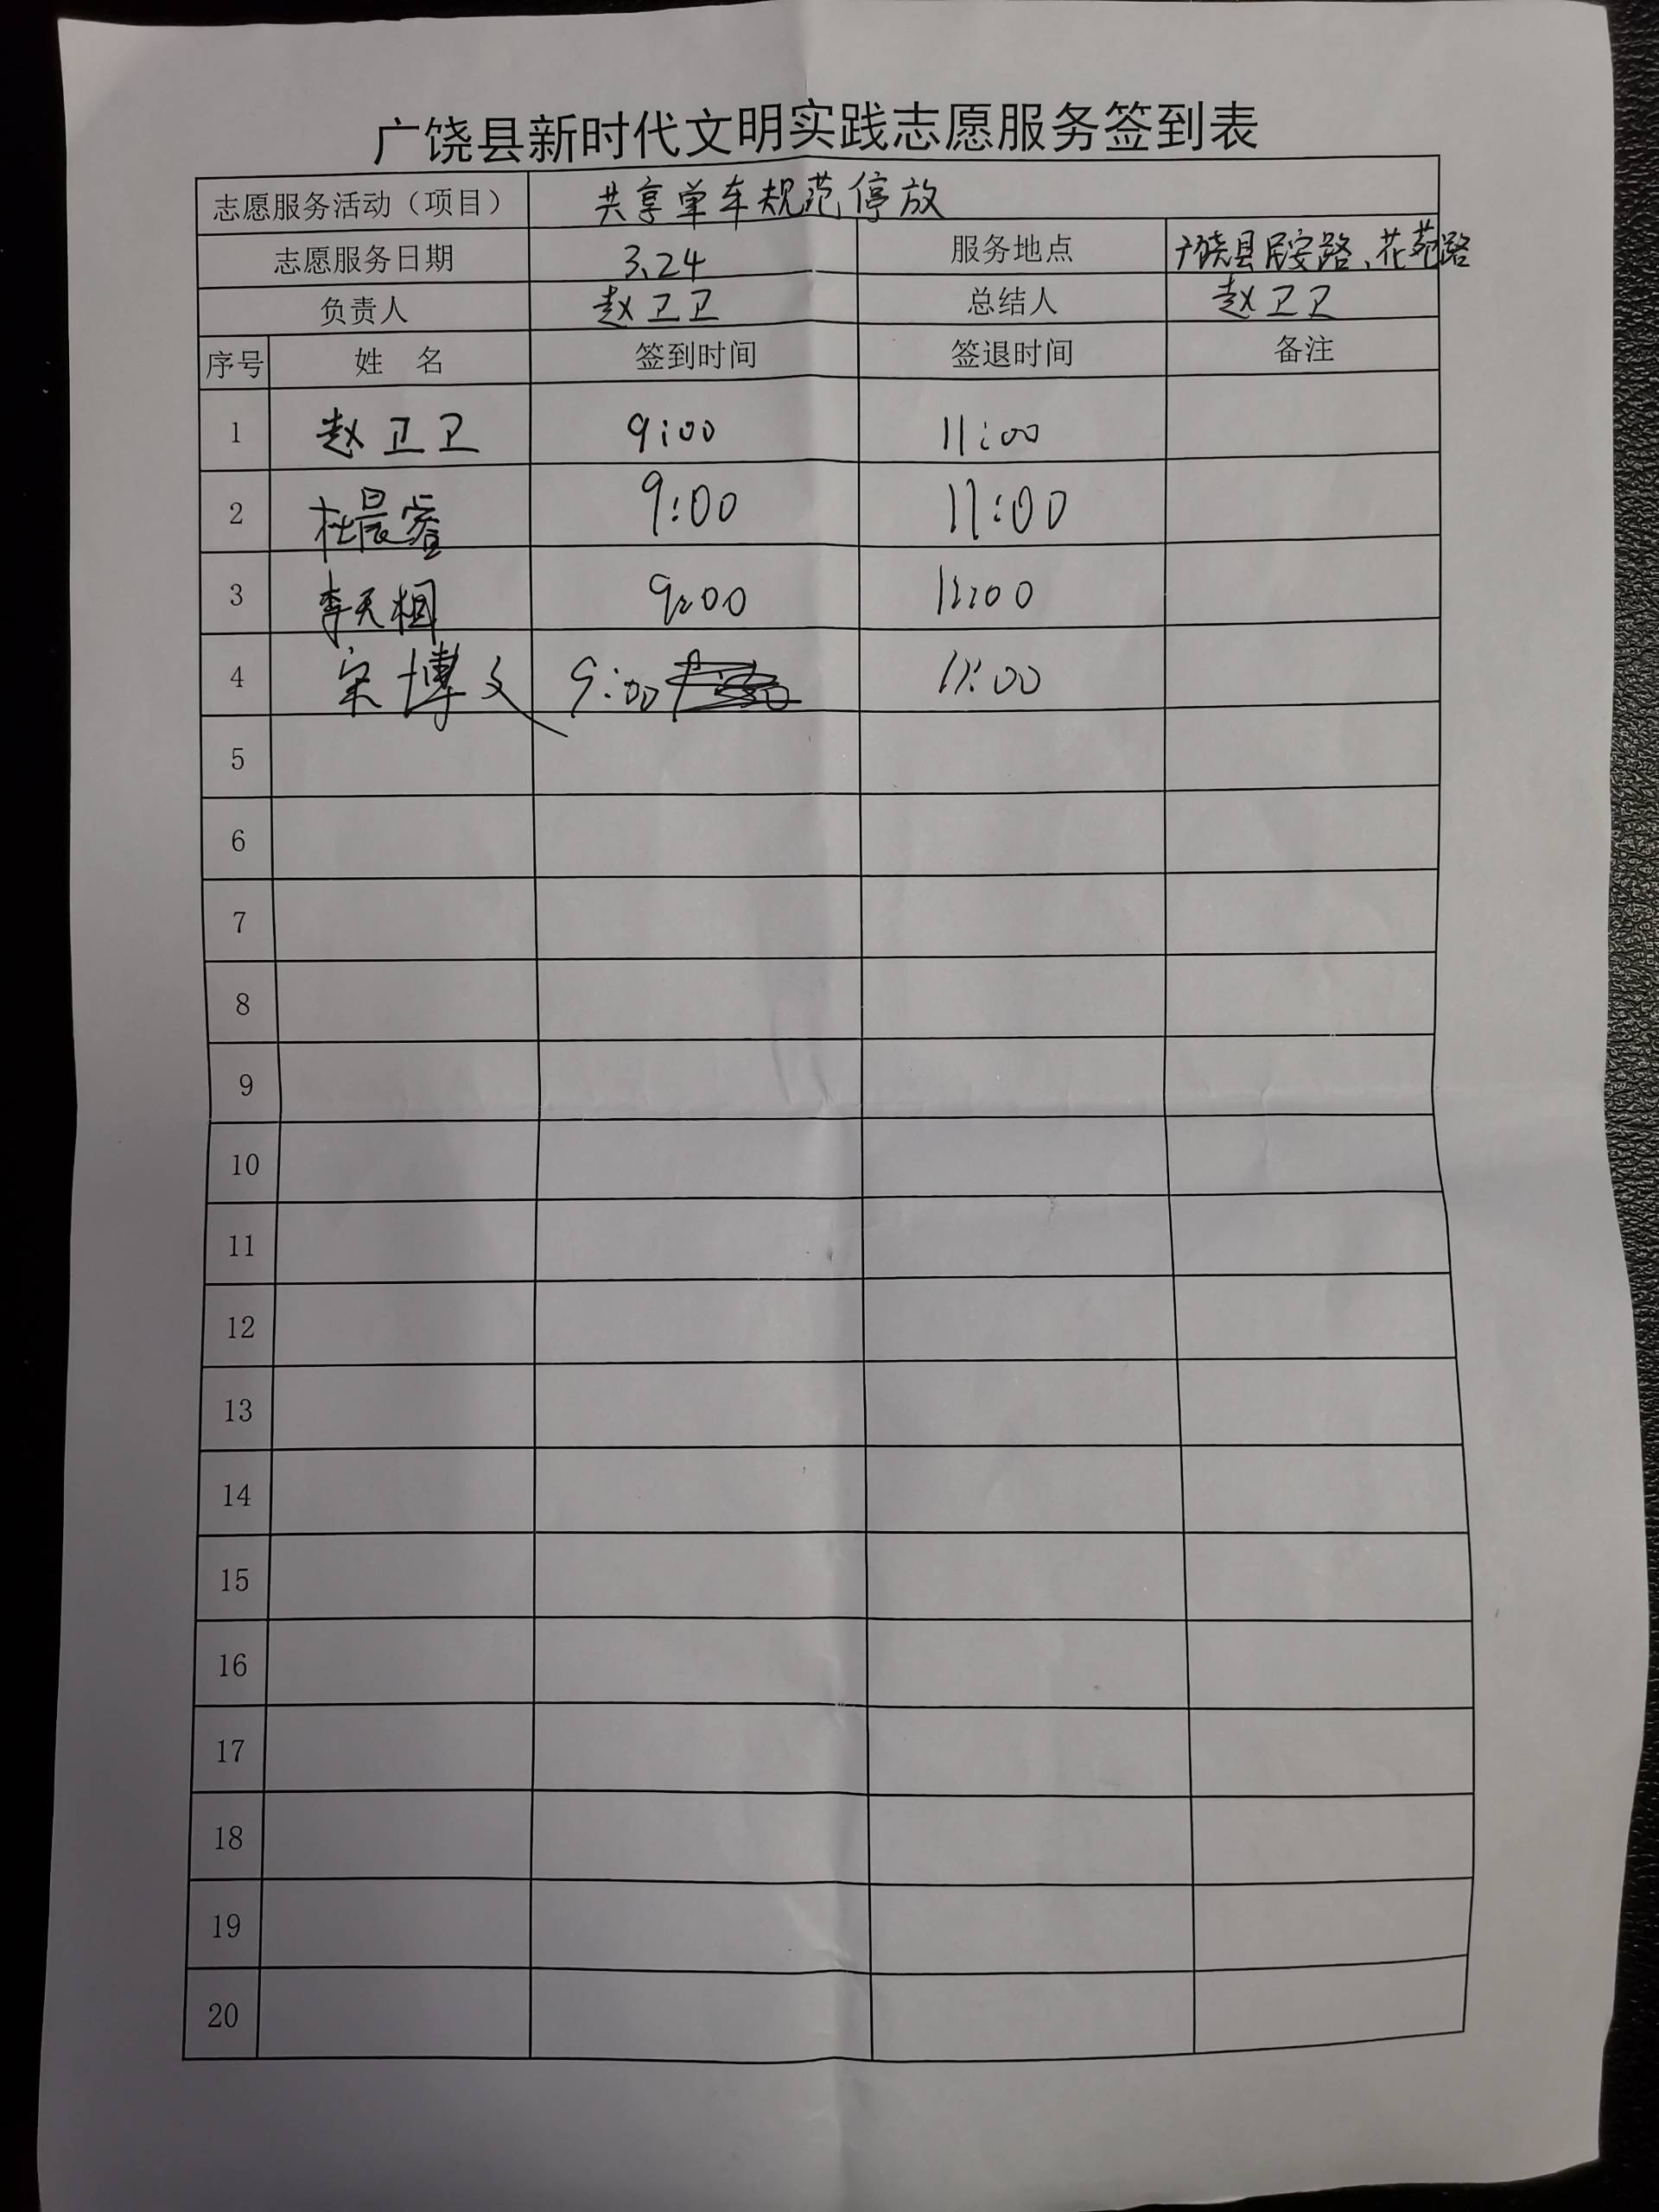 广饶县新时代文明实践志愿服务签到表
志愿服务活动（项目） 共享单车规范停放
志愿服务日期 3.24 服务地点 广饶县民安路、花苑路
负责人 赵卫卫 总结人 赵卫卫
序号 姓 名 签到时间 签退时间 备注
1 赵卫卫 9:00 11:00
2 杜晨睿 9:00 11:00
3 李天相 9:00 11:00
4 宋博文 9:00 11:00
5
6
7
8
9
10
11
12
13
14
15
16
17
18
19
20